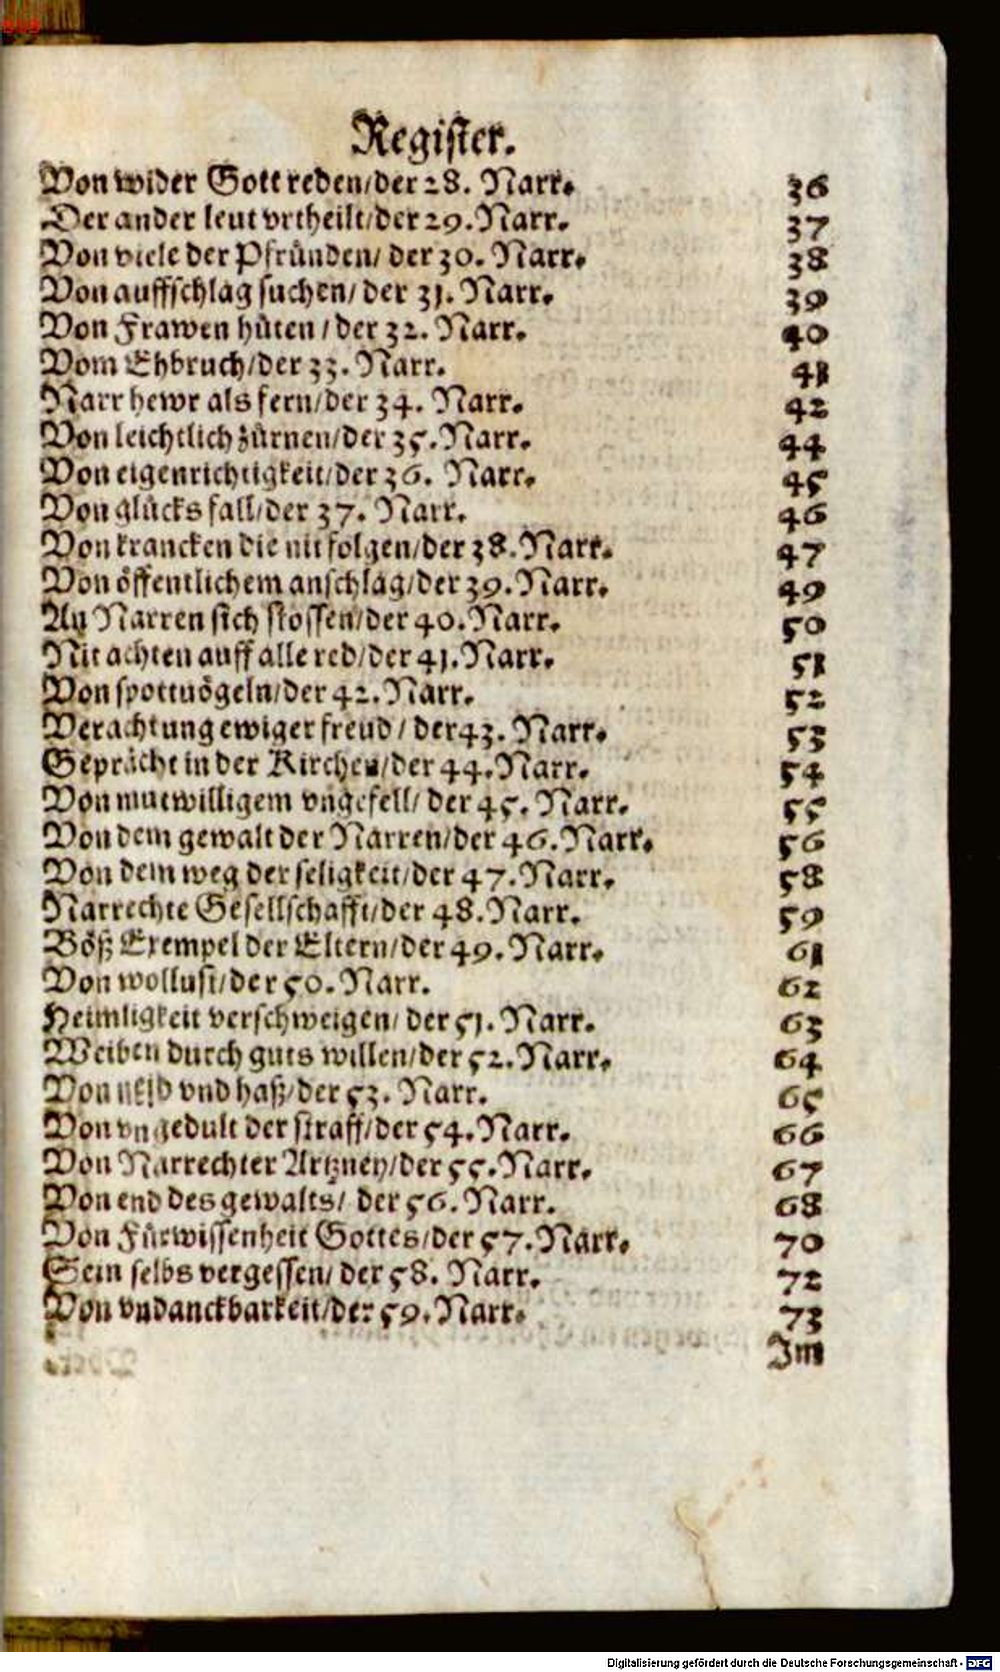 Register.
Von wider Gott reden/der 28. Narr. 36
Der ander leut vrtheilt/der 29. Narr. 37
Von viele der Pfründen/ der 30. Narr. 38
Von auffschlag suchen/ der 31. Narr. 39
Von Frawen hüten / der 32. Narr. 40
Vom Ehbruch/der 33. Narr. 41
Narr hewr als fern/der 34. Narr. 42
Von leichtlich zürnen/der 35. Narr. 44
Von eigenrichtigkeit/der 36. Narr. 45
Von glücks fall/der 37. Narr. 46
Von krancken die nit folgen/der 38. Narr. 47
Von öffentlichem anschlag/der 39. Narr. 49
An Narren sich stossen/der 40. Narr. 50
Nit achten auff alle red/der 41. Narr. 51
Von spottuögeln/der 42. Narr. 52
Verachtung ewiger freud / der 43. Narr. 53
Gepräch in der Kirchen/der 44. Narr. 54
Von mutwilligem vngefell/ der 45. Narr. 55
Von dem gewalt der Narren/der 46. Narr. 56
Von dem weg der seligkeit/der 47. Narr. 58
Narrechte Gesellschafft/der 48. Narr. 59
Böß Exempel der Eltern/der 49. Narr. 61
Von wollust/der 50. Narr. 62
Heimligkeit verschweigen/ der 51. Narr. 63
Weiben durch guts willen/der 52. Narr. 64
Von neid vnd haß/der 53. Narr. 65
Von vngedult der straff/der 54. Narr. 66
Von Narrechter Artzney/der 55. Narr. 67
Von end des gewalts/ der 56. Narr. 68
Von Fürwissenheit Gottes/der 57. Narr. 70
Sein selbs vergessen/ der 58. Narr. 72
Von vndanckbarkeit/der 59. Narr. 73
Im
Digitalisierung gefördert durch die Deutsche Forschungsgemeinschaft - DFG